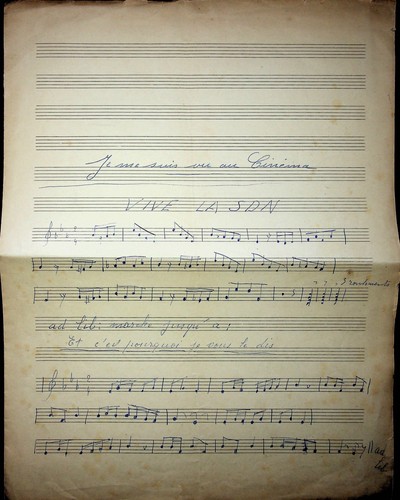 Je me suis vu au Cinéma
VIVE LA SDN
ad lib: marche jusqu'à:
Et c'est pourquoi je vous le dis
ad
lib